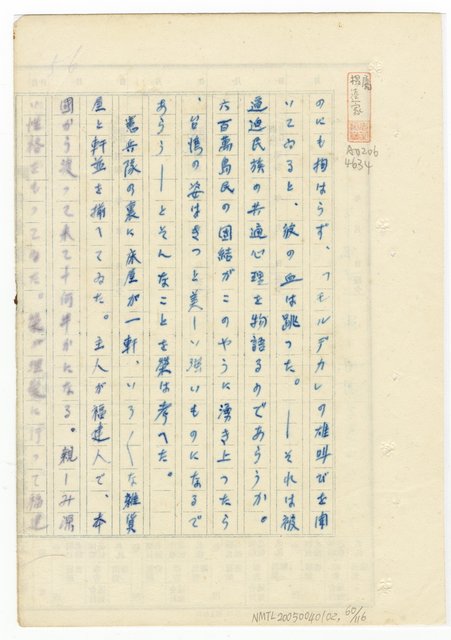 のにも拘はらず、「モルデカレ」の雄叫びを聞
いてゐると、彼の血は跳つた。――それは被
壓迫民族の共通心理を物語るのであらうか。
六百萬島民の團結がこのやうに湧き上つたら
、台湾の姿はきつと美しい强いものになるで
あらう――とそんなことを榮は考へた。
憲兵隊の裏に床屋が一軒、いろ〱な雑貨
屋と軒並を揃へてゐた。主人が福建人で、本
國から渡つて来て十何年かになる。親しみ深
い性格をもつてゐた。榮は理髪に行つて福建
NMTL20050040102, 60/116